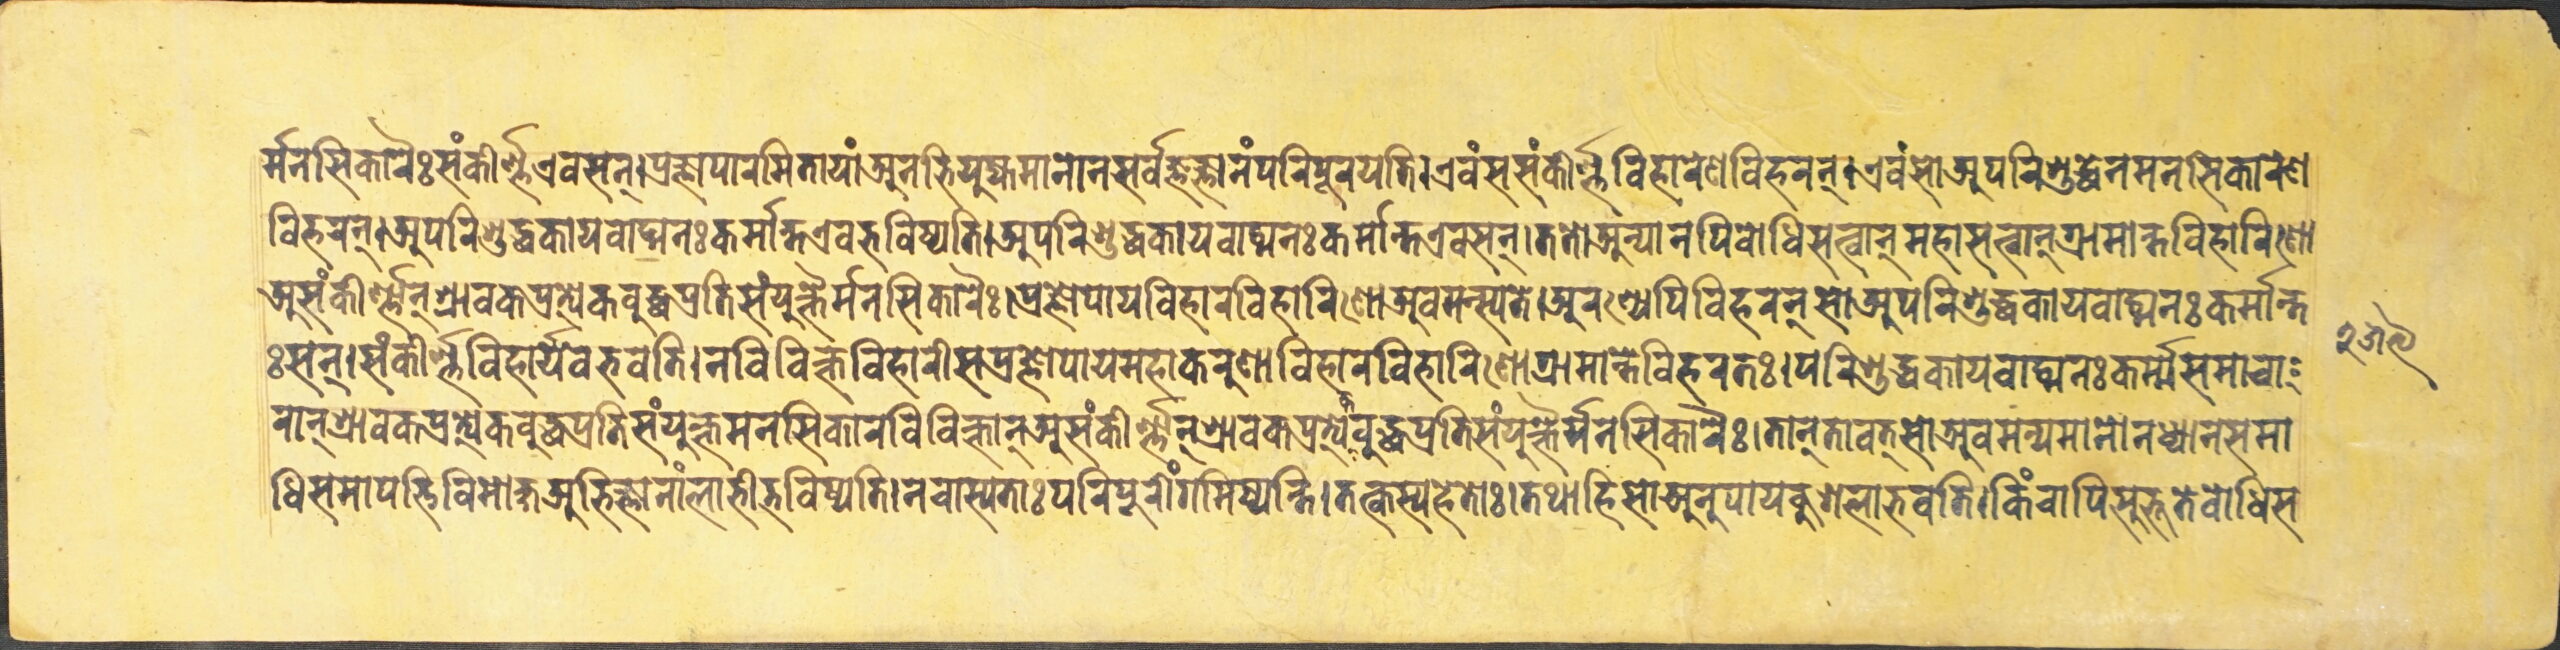 र्मनसिकारैः संकीर्ण्ण एव सन् । प्रज्ञापारमितायां अनभियुज्यमानो न सर्वज्ञज्ञानं परिपूरयति । एवं स संकीर्ण्णविहारेण विहरन् । एवं सो अपरिशुद्धेन मनसिकारेण
विहरन् । अपरिशुद्धकायवाङ्मनः कर्मान्त एव भविष्यति । अपरिशुद्धकायवाङ्मनः कर्मान्त एव सन् । ततो अन्यानपि बोधिसत्वान् महासत्वान् ग्रामान्तविहारिणो
असंकीर्ण्णान् श्रावकप्रत्येकबुद्धप्रतिसंयुक्तैर्मनसिकारैः । प्रज्ञोपायविहारविहारिणो अवमन्स्यते । अरण्येपि विहरन् सो अपरिशुद्धकायवाङ्मनः कर्मान्त
ः सन् । संकीर्ण्णविहार्येव भवति । न विविक्तविहारी स प्रज्ञोपायमहाकरुणाविहारविहारिणो ग्रामान्ते विहरतः । परिशुद्धकायवाङ्मनः कर्म्मसमाचा
रान् श्रावकप्रत्येकबुद्धप्रतिसंयुक्तमनसिकारविविक्तान् असंकीर्ण्णान् श्रावकप्रत्येकबुद्धप्रतिसंयुक्तैर्मनसिकारैः । तान् तावत् सो अवमन्यमानो न ध्यानसमा
धिसमापत्तिविमोक्षअभिज्ञानां लाभी भविष्यति । न चास्य ताः परिपूरीं गमिष्यन्ति । तत्कस्य हेतोः । तथा हि सो अनुपायकुशलो भवति । किंचापि सुभूते बोधिस